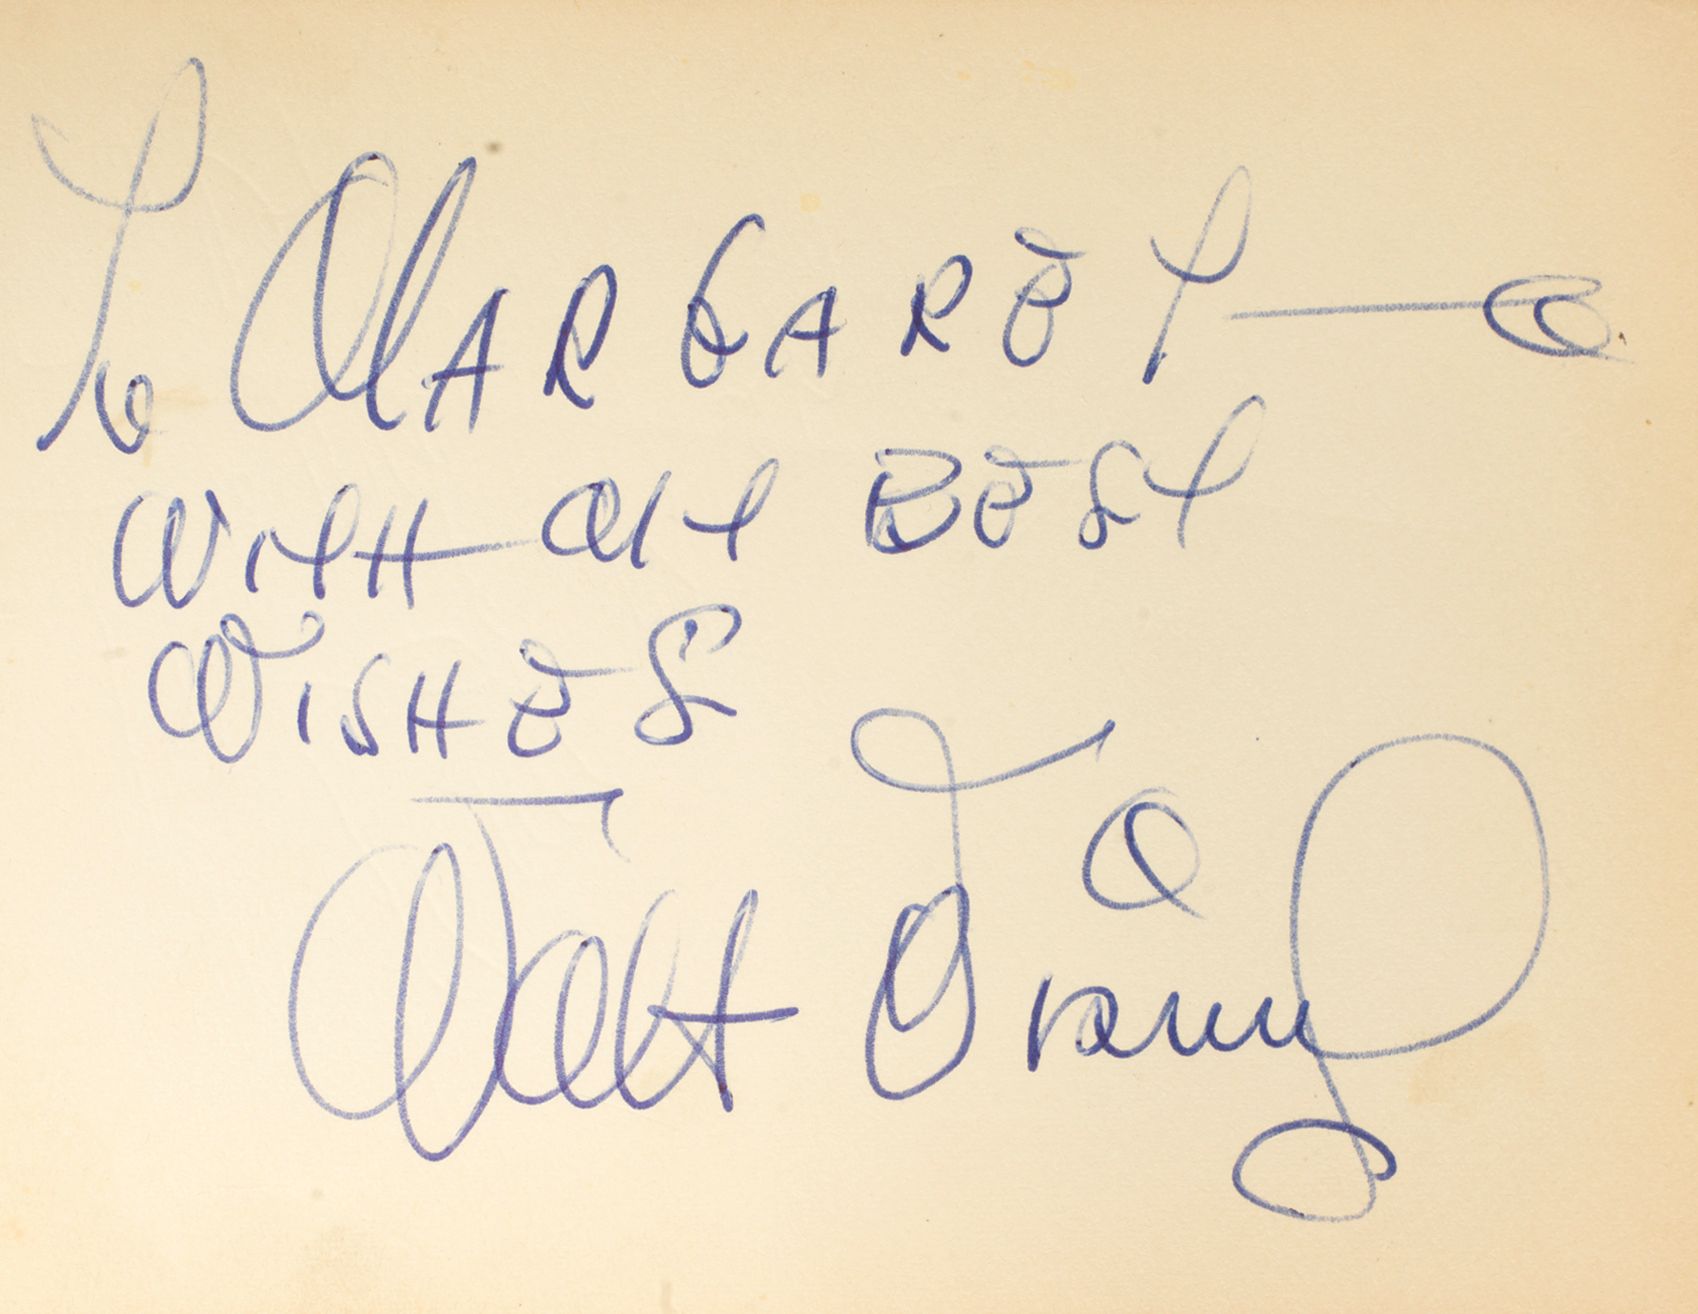 To MARGARET —
WITH MY BEST
WISHES
Walt Disney